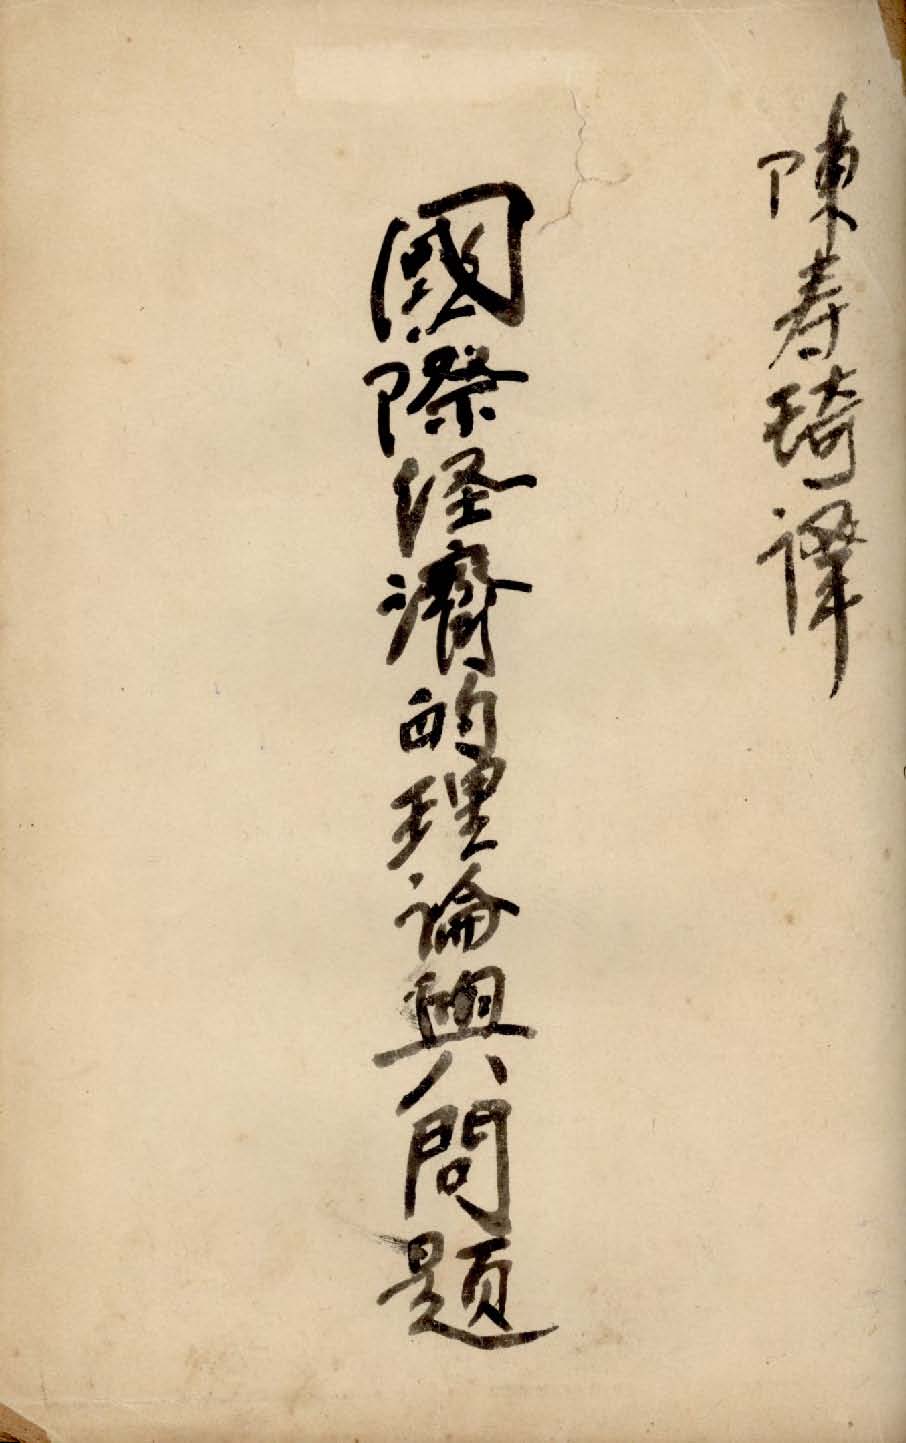 陳寿琦譯
國際经濟的理論與問題